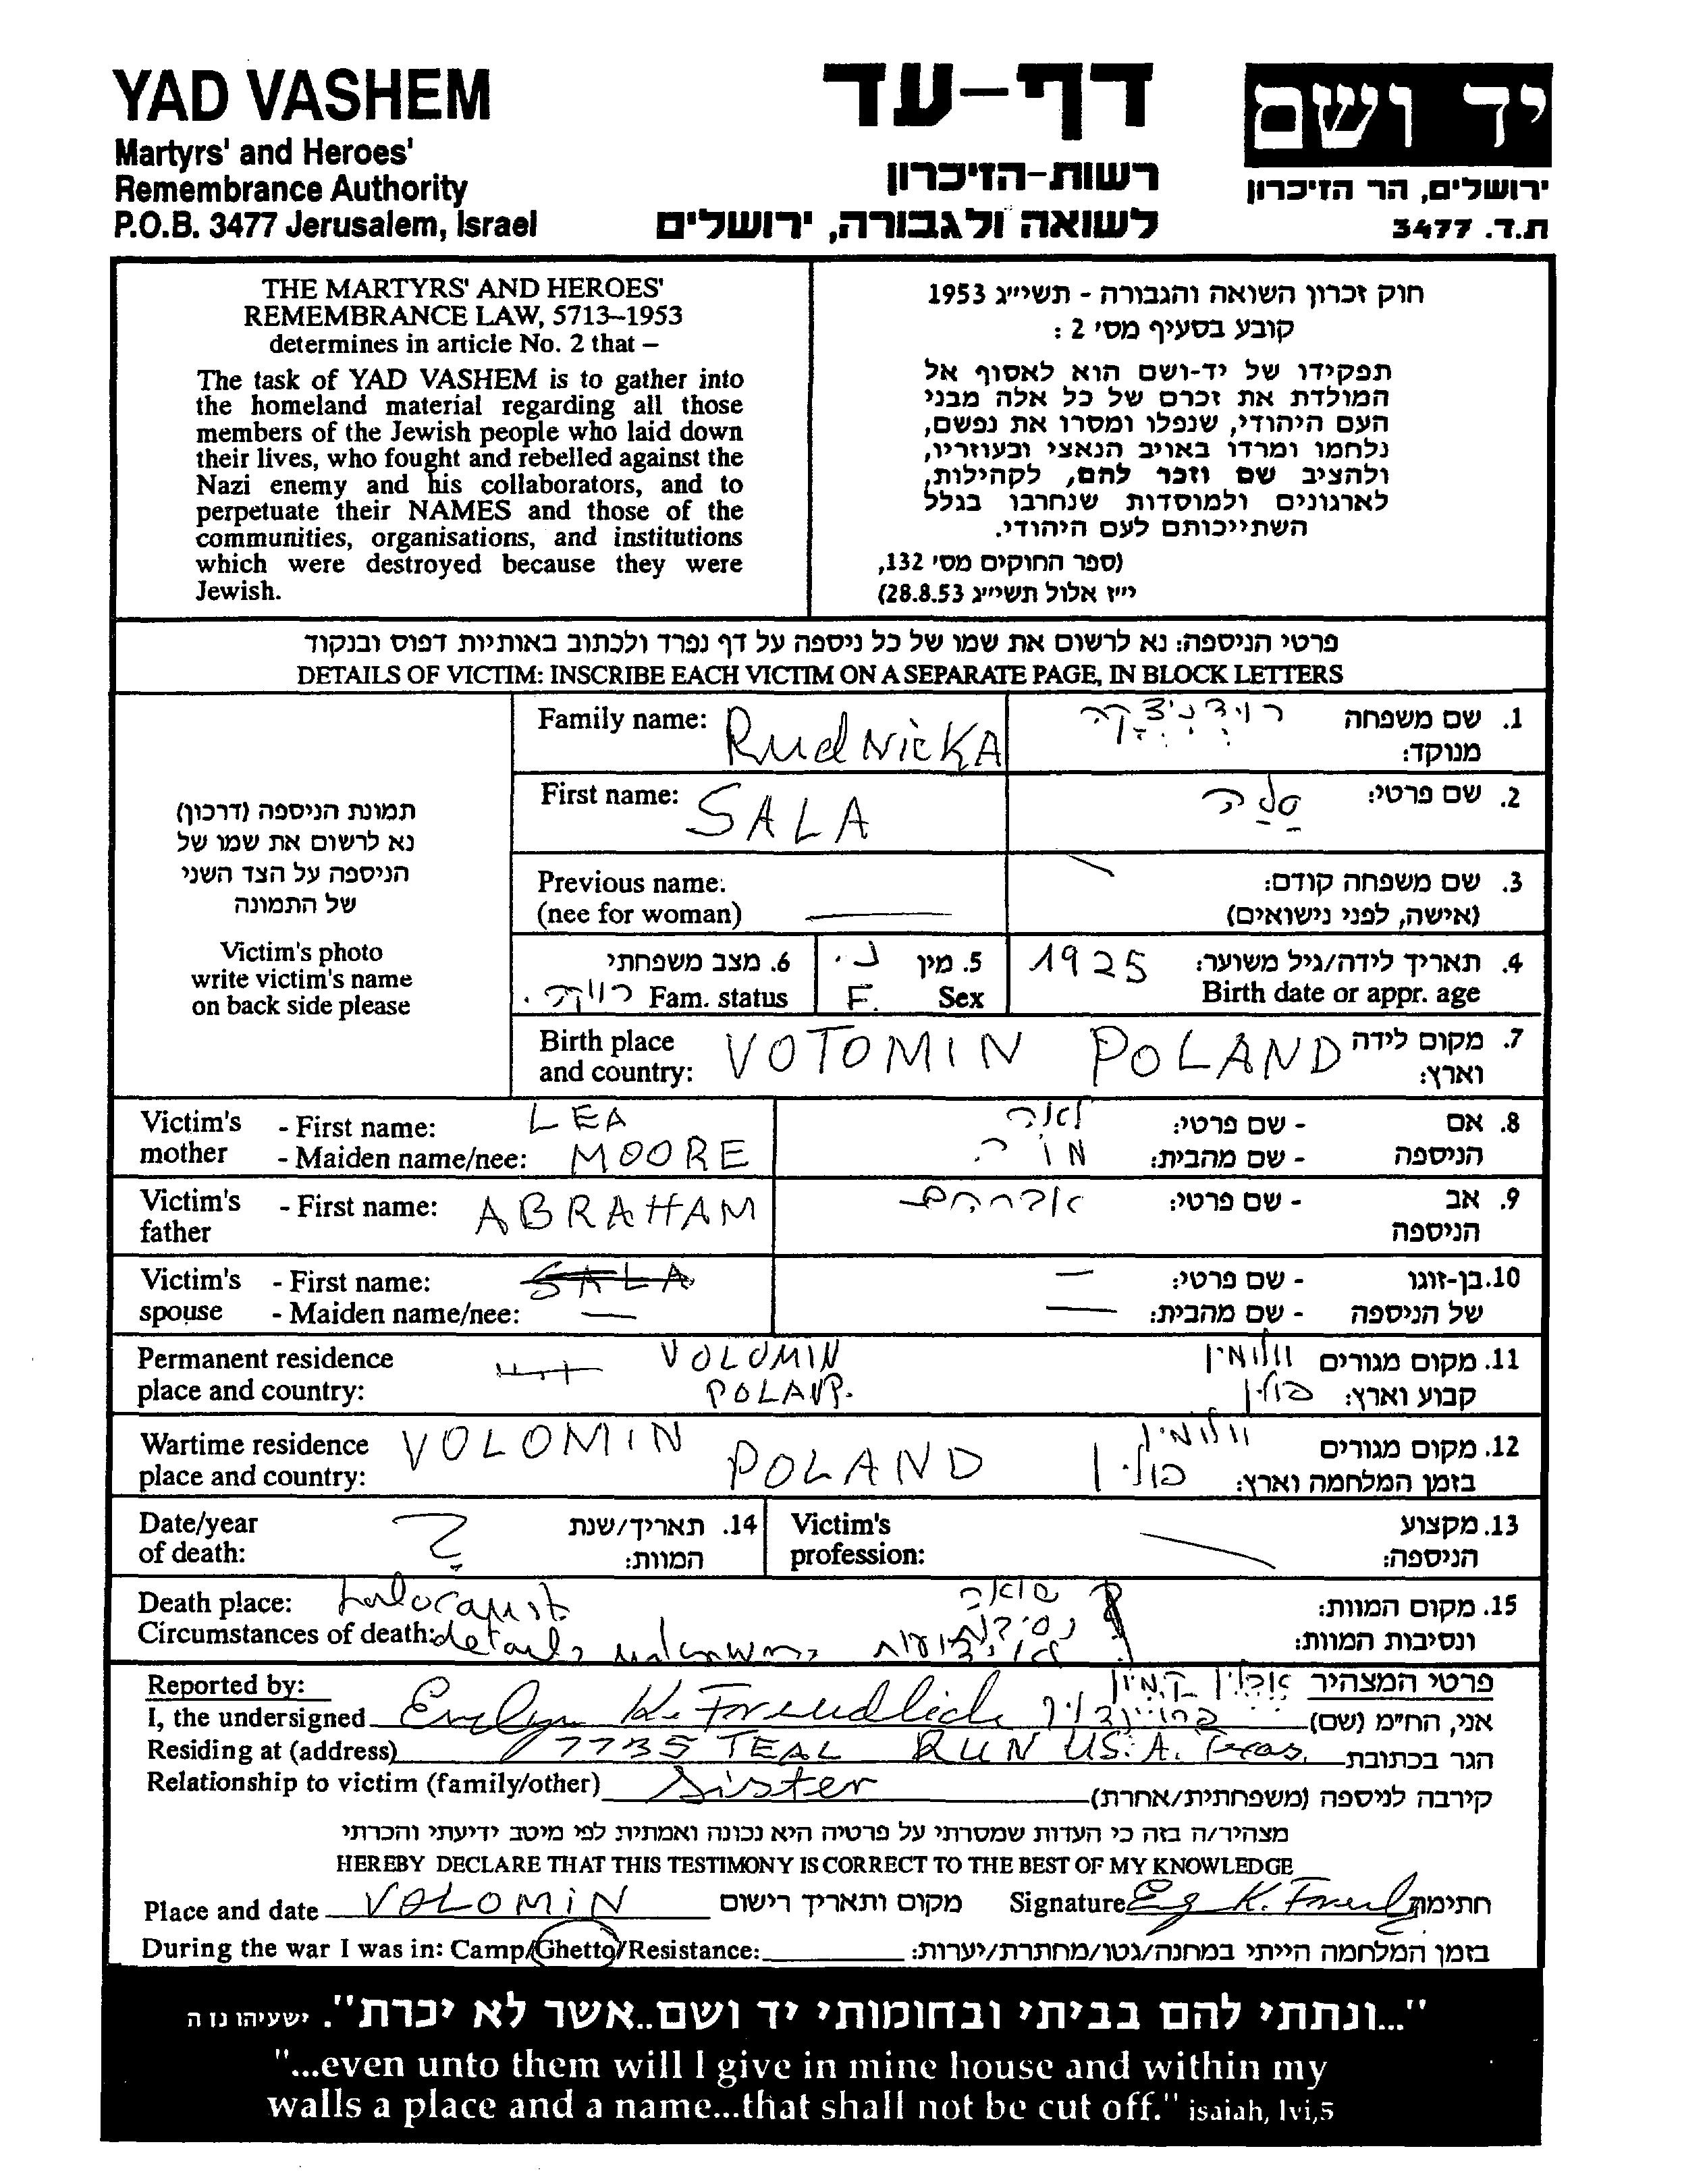 YAD VASHEM
Martyrs' and Heroes'
Remembrance Authority
P.O.B. 3477 Jerusalem, Israel
דף-עד
רשות-הזיכרון
לשואה ולגבורה, ירושלים
יד ושם
ירושלים, הר הזיכרון
ת.ד. 3477
THE MARTYRS' AND HEROES'
REMEMBRANCE LAW, 5713–1953
determines in article No. 2 that –
The task of YAD VASHEM is to gather into
the homeland material regarding all those
members of the Jewish people who laid down
their lives, who fought and rebelled against the
Nazi enemy and his collaborators, and to
perpetuate their NAMES and those of the
communities, organisations, and institutions
which were destroyed because they were
Jewish.
חוק זכרון השואה והגבורה - תשי״ג 1953
קובע בסעיף מס׳ 2 :
תפקידו של יד-ושם הוא לאסוף אל
המולדת את זכרם של כל אלה מבני
העם היהודי, שנפלו ומסרו את נפשם,
נלחמו ומרדו באויב הנאצי ובעוזריו,
ולהציב שם וזכר להם, לקהילות,
לארגונים ולמוסדות שנחרבו בגלל
השתייכותם לעם היהודי.
(ספר החוקים מס׳ 132,
י״ז אלול תשי״ג 28.8.53)
פרטי הניספה: נא לרשום את שמו של כל ניספה על דף נפרד ולכתוב באותיות דפוס ובנקוד
DETAILS OF VICTIM: INSCRIBE EACH VICTIM ON A SEPARATE PAGE, IN BLOCK LETTERS
תמונת הניספה (דרכון)
נא לרשום את שמו של
הניספה על הצד השני
של התמונה
Victim's photo
write victim's name
on back side please
Family name: RudNicKA
1. שם משפחה
מנוקד: רודניצקה
First name: SALA
2. שם פרטי: סלה
Previous name:
(nee for woman) —
3. שם משפחה קודם:
(אישה, לפני נישואים)
6. מצב משפחתי
Fam. status רווקה.
5. מין נ.
Sex F.
4. תאריך לידה/גיל משוער: 1925
Birth date or appr. age
Birth place
and country: VOTOMIN POLAND
7. מקום לידה
וארץ:
Victim's mother - First name: LEA
- Maiden name/nee: MOORE
8. אם הניספה - שם פרטי: לאה
- שם מהבית: מור.
Victim's father - First name: ABRAHAM
9. אב הניספה - שם פרטי: אברהם
Victim's spouse - First name: SALA
- Maiden name/nee: —
10. בן-זוגו של הניספה - שם פרטי: —
- שם מהבית: —
Permanent residence
place and country: VOLOMIN
POLAND.
11. מקום מגורים וולומין
קבוע וארץ: פולין
Wartime residence
place and country: VOLOMIN POLAND
12. מקום מגורים וולומין
בזמן המלחמה וארץ: פולין
Date/year
of death: ?
14. תאריך/שנת
המוות:
Victim's
profession:
13. מקצוע
הניספה:
Death place: holocaust
Circumstances of death: details unknown
15. מקום המוות: שואה
ונסיבות המוות:
Reported by:
פרטי המצהיר אבלין
I, the undersigned Evelyn K. Freundlich אני, החי״מ (שם)
Residing at (address) 7735 TEAL RUN U.S.A. Texas. הגר בכתובת
Relationship to victim (family/other) Sister קירבה לניספה (משפחתית/אחרת)
מצהיר/ה בזה כי העדות שמסרתי על פרטיה היא נכונה ואמתית לפי מיטב ידיעתי והכרתי
HEREBY DECLARE THAT THIS TESTIMONY IS CORRECT TO THE BEST OF MY KNOWLEDGE
Place and date VOLOMIN מקום ותאריך רישום Signature חתימה
During the war I was in: Camp/Ghetto/Resistance: בזמן המלחמה הייתי במחנה/גטו/מחתרת/יערות:
"...ונתתי להם בביתי ובחומותי יד ושם..אשר לא יכרת". ישעיהו נו ה
"...even unto them will I give in mine house and within my
walls a place and a name...that shall not be cut off." isaiah, lvi,5